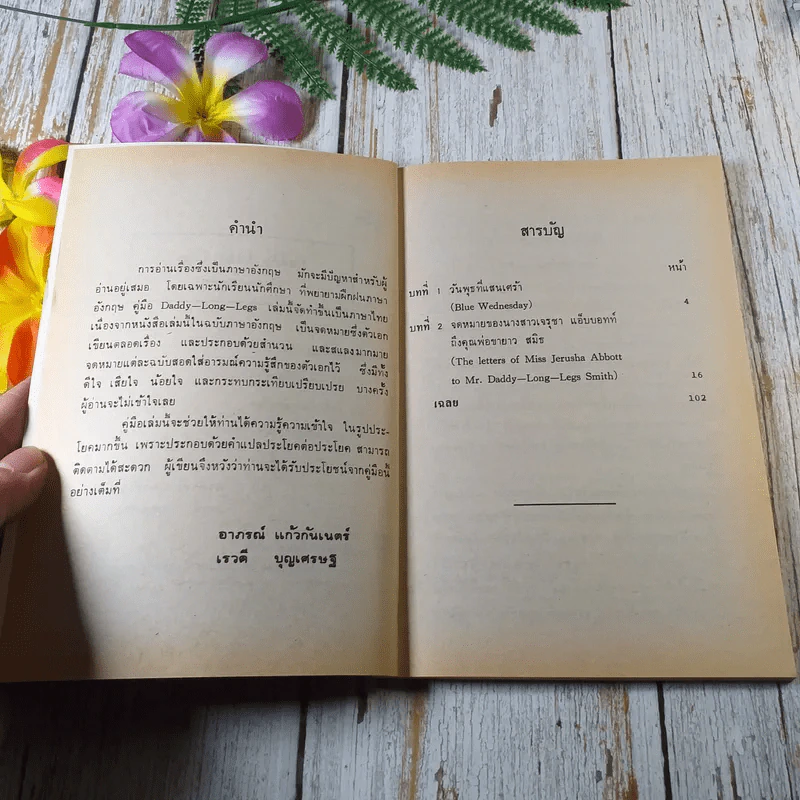 คำนำ
การอ่านเรื่องซึ่งเป็นภาษาอังกฤษ มักจะมีปัญหาสำหรับผู้
อ่านอยู่เสมอ โดยเฉพาะนักเรียนนักศึกษา ที่พยายามฝึกฝนภาษา
อังกฤษ คู่มือ Daddy—Long—Legs เล่มนี้จัดทำขึ้นเป็นภาษาไทย
เนื่องจากหนังสือเล่มนี้ในฉบับภาษาอังกฤษ เป็นจดหมายซึ่งตัวเอก
เขียนตลอดเรื่อง และประกอบด้วยสำนวน และสแลงมากมาย
จดหมายแต่ละฉบับสอดใส่อารมณ์ความรู้สึกของตัวเอกไว้ ซึ่งมีทั้ง
ดีใจ เสียใจ น้อยใจ และกระทบกระเทียบเปรียบเปรย บางครั้ง
ผู้อ่านจะไม่เข้าใจเลย
คู่มือเล่มนี้จะช่วยให้ท่านได้ความรู้ความเข้าใจ ในรูปประ-
โยคมากขึ้น เพราะประกอบด้วยคำแปลประโยคต่อประโยค สามารถ
ติดตามได้สะดวก ผู้เขียนจึงหวังว่าท่านจะได้รับประโยชน์จากคู่มือนี้
อย่างเต็มที่
อาภรณ์ แก้วกันเนตร์
เรวดี บุญเศรษฐ
สารบัญ
หน้า
บทที่ 1 วันพุธที่แสนเศร้า
(Blue Wednesday) 4
บทที่ 2 จดหมายของนางสาวเจรุชา แอ็บบอทท์
ถึงคุณพ่อขายาว สมิธ
(The letters of Miss Jerusha Abbott
to Mr. Daddy—Long—Legs Smith) 16
เฉลย 102